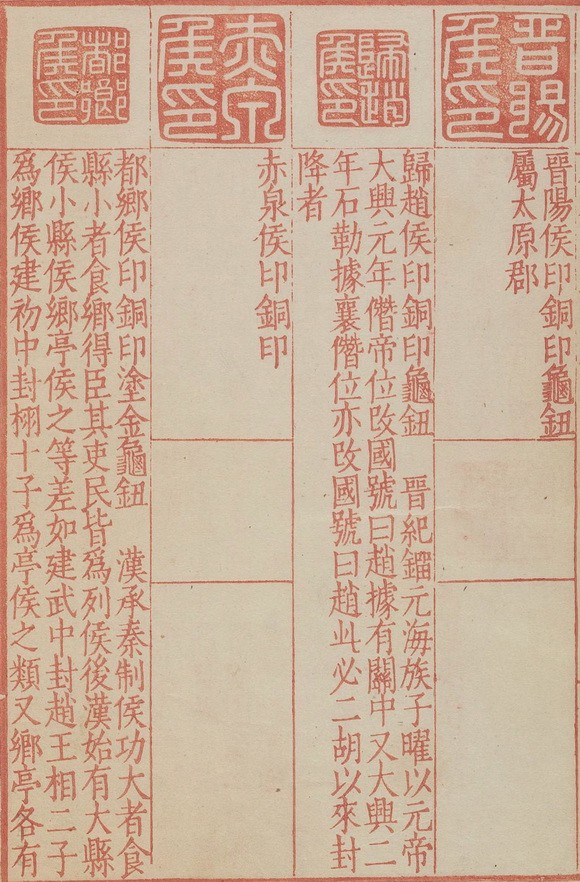 晉陽侯印
晉陽侯印銅印龜鈕
屬太原郡
歸趙侯印
歸趙侯印銅印龜鈕　晉紀鎦元海族子曜以元帝
大興元年僭帝位改國號曰趙據有關中又大興二
年石勒據襄僭位亦改國號曰趙此必二胡以來封
降者
赤泉侯印
赤泉侯印銅印
都鄉侯印
都鄉侯印銅印塗金龜鈕　漢承秦制侯功大者食
縣小者食鄉得臣其吏民皆爲列侯後漢始有大縣
侯小縣侯鄉亭侯之等差如建武中封趙王相二子
爲鄉侯建初中封栩十子爲亭侯之類又鄉亭各有